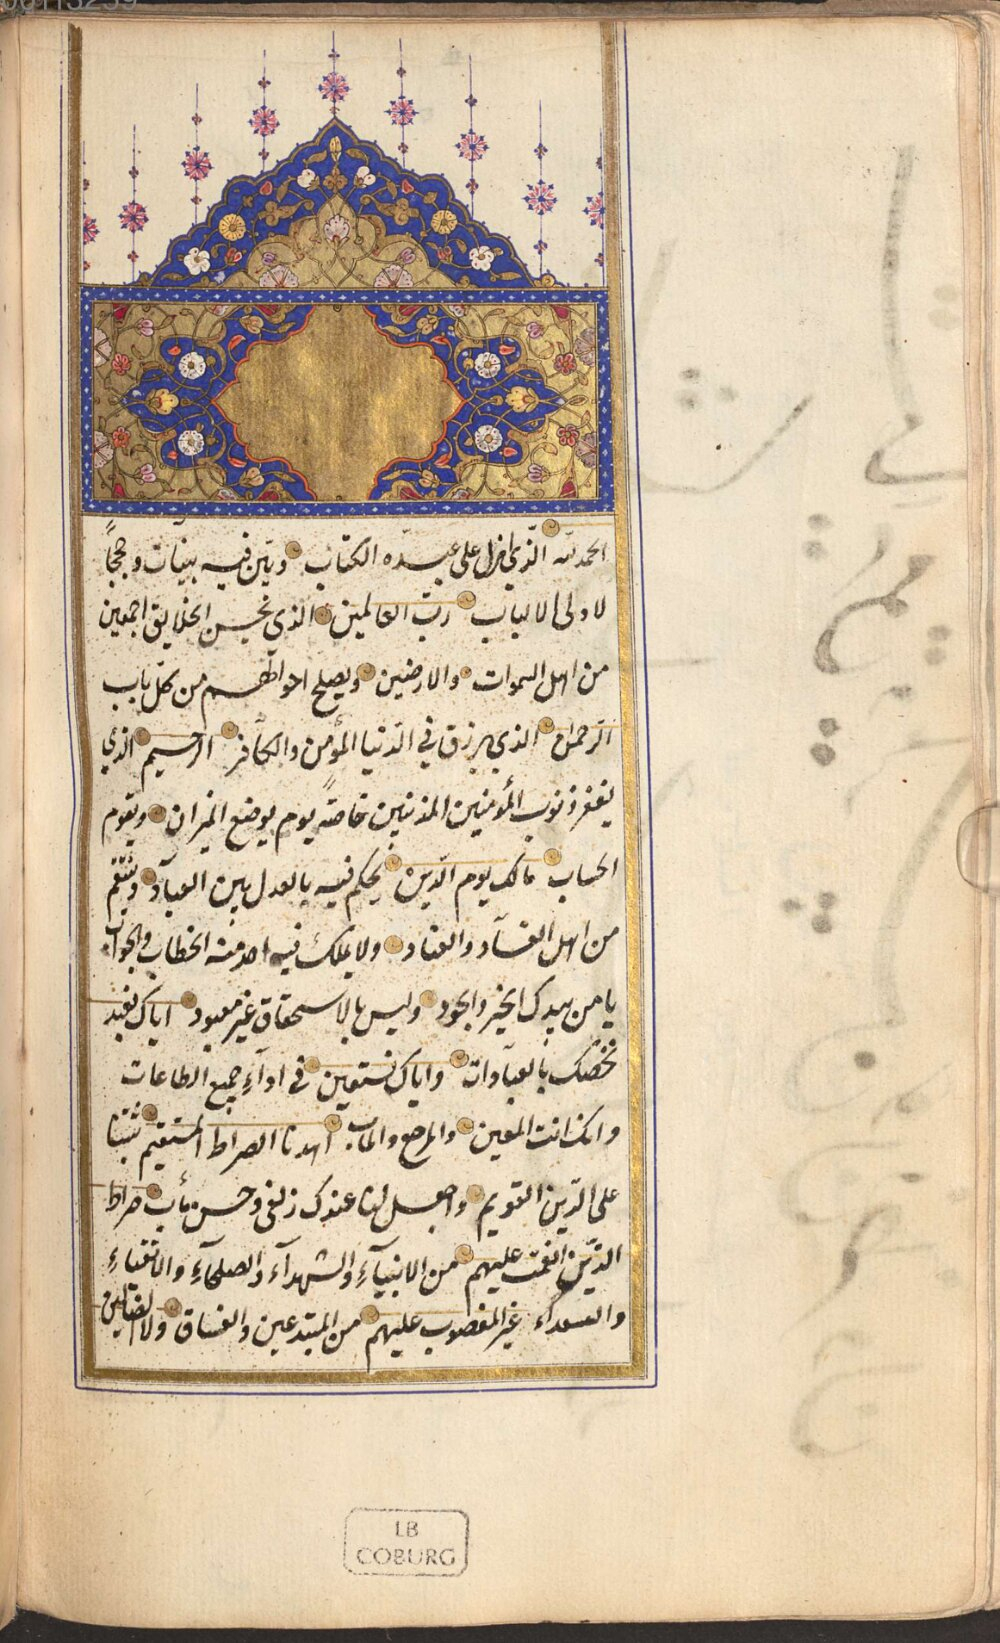 الحمد لله الّذي انزل على عبده الكتاب وبيّن فيه بينات وحججاً
لاولى الالباب ربّ العالمين الذي يحسن الخلايق اجمعين
من اهل السموات والارضين ويصلح احوالهم من كلّ باب
الرّحمن الذي يرزق في الدّنيا المؤمن والكافر الرحيم الذي
يغفر ذنوب المؤمنين المذنبين خاصّةً يوم يوضع الميزان ويقوم
الحساب مالك يوم الدّين يحكم فيه بالعدل بين العباد وينتقم
من اهل الفساد والعناد ولا يملك فيه احد منه الخطاب والجواب
يا من بيدك الخير والجود وليس بالاستحقاق غيرمعبود اياك نعبد
نخصّك بالعبادات واياك نستعين في اداء جميع الطاعات
وانك انت المعين والمرجع والمآب اهدنا الصراط المستقيم ثبّتنا
على الدّين القويم واجعل لنا عندك زلفى وحسن مأب صراط
الذّين انعمت عليهم من الانبيآء والشهدآء والصلحآء والاتقياء
والسعداء غيرالمغضوب عليهم من المبتدعين والفساق ولا الضالّين
LB
COBURG